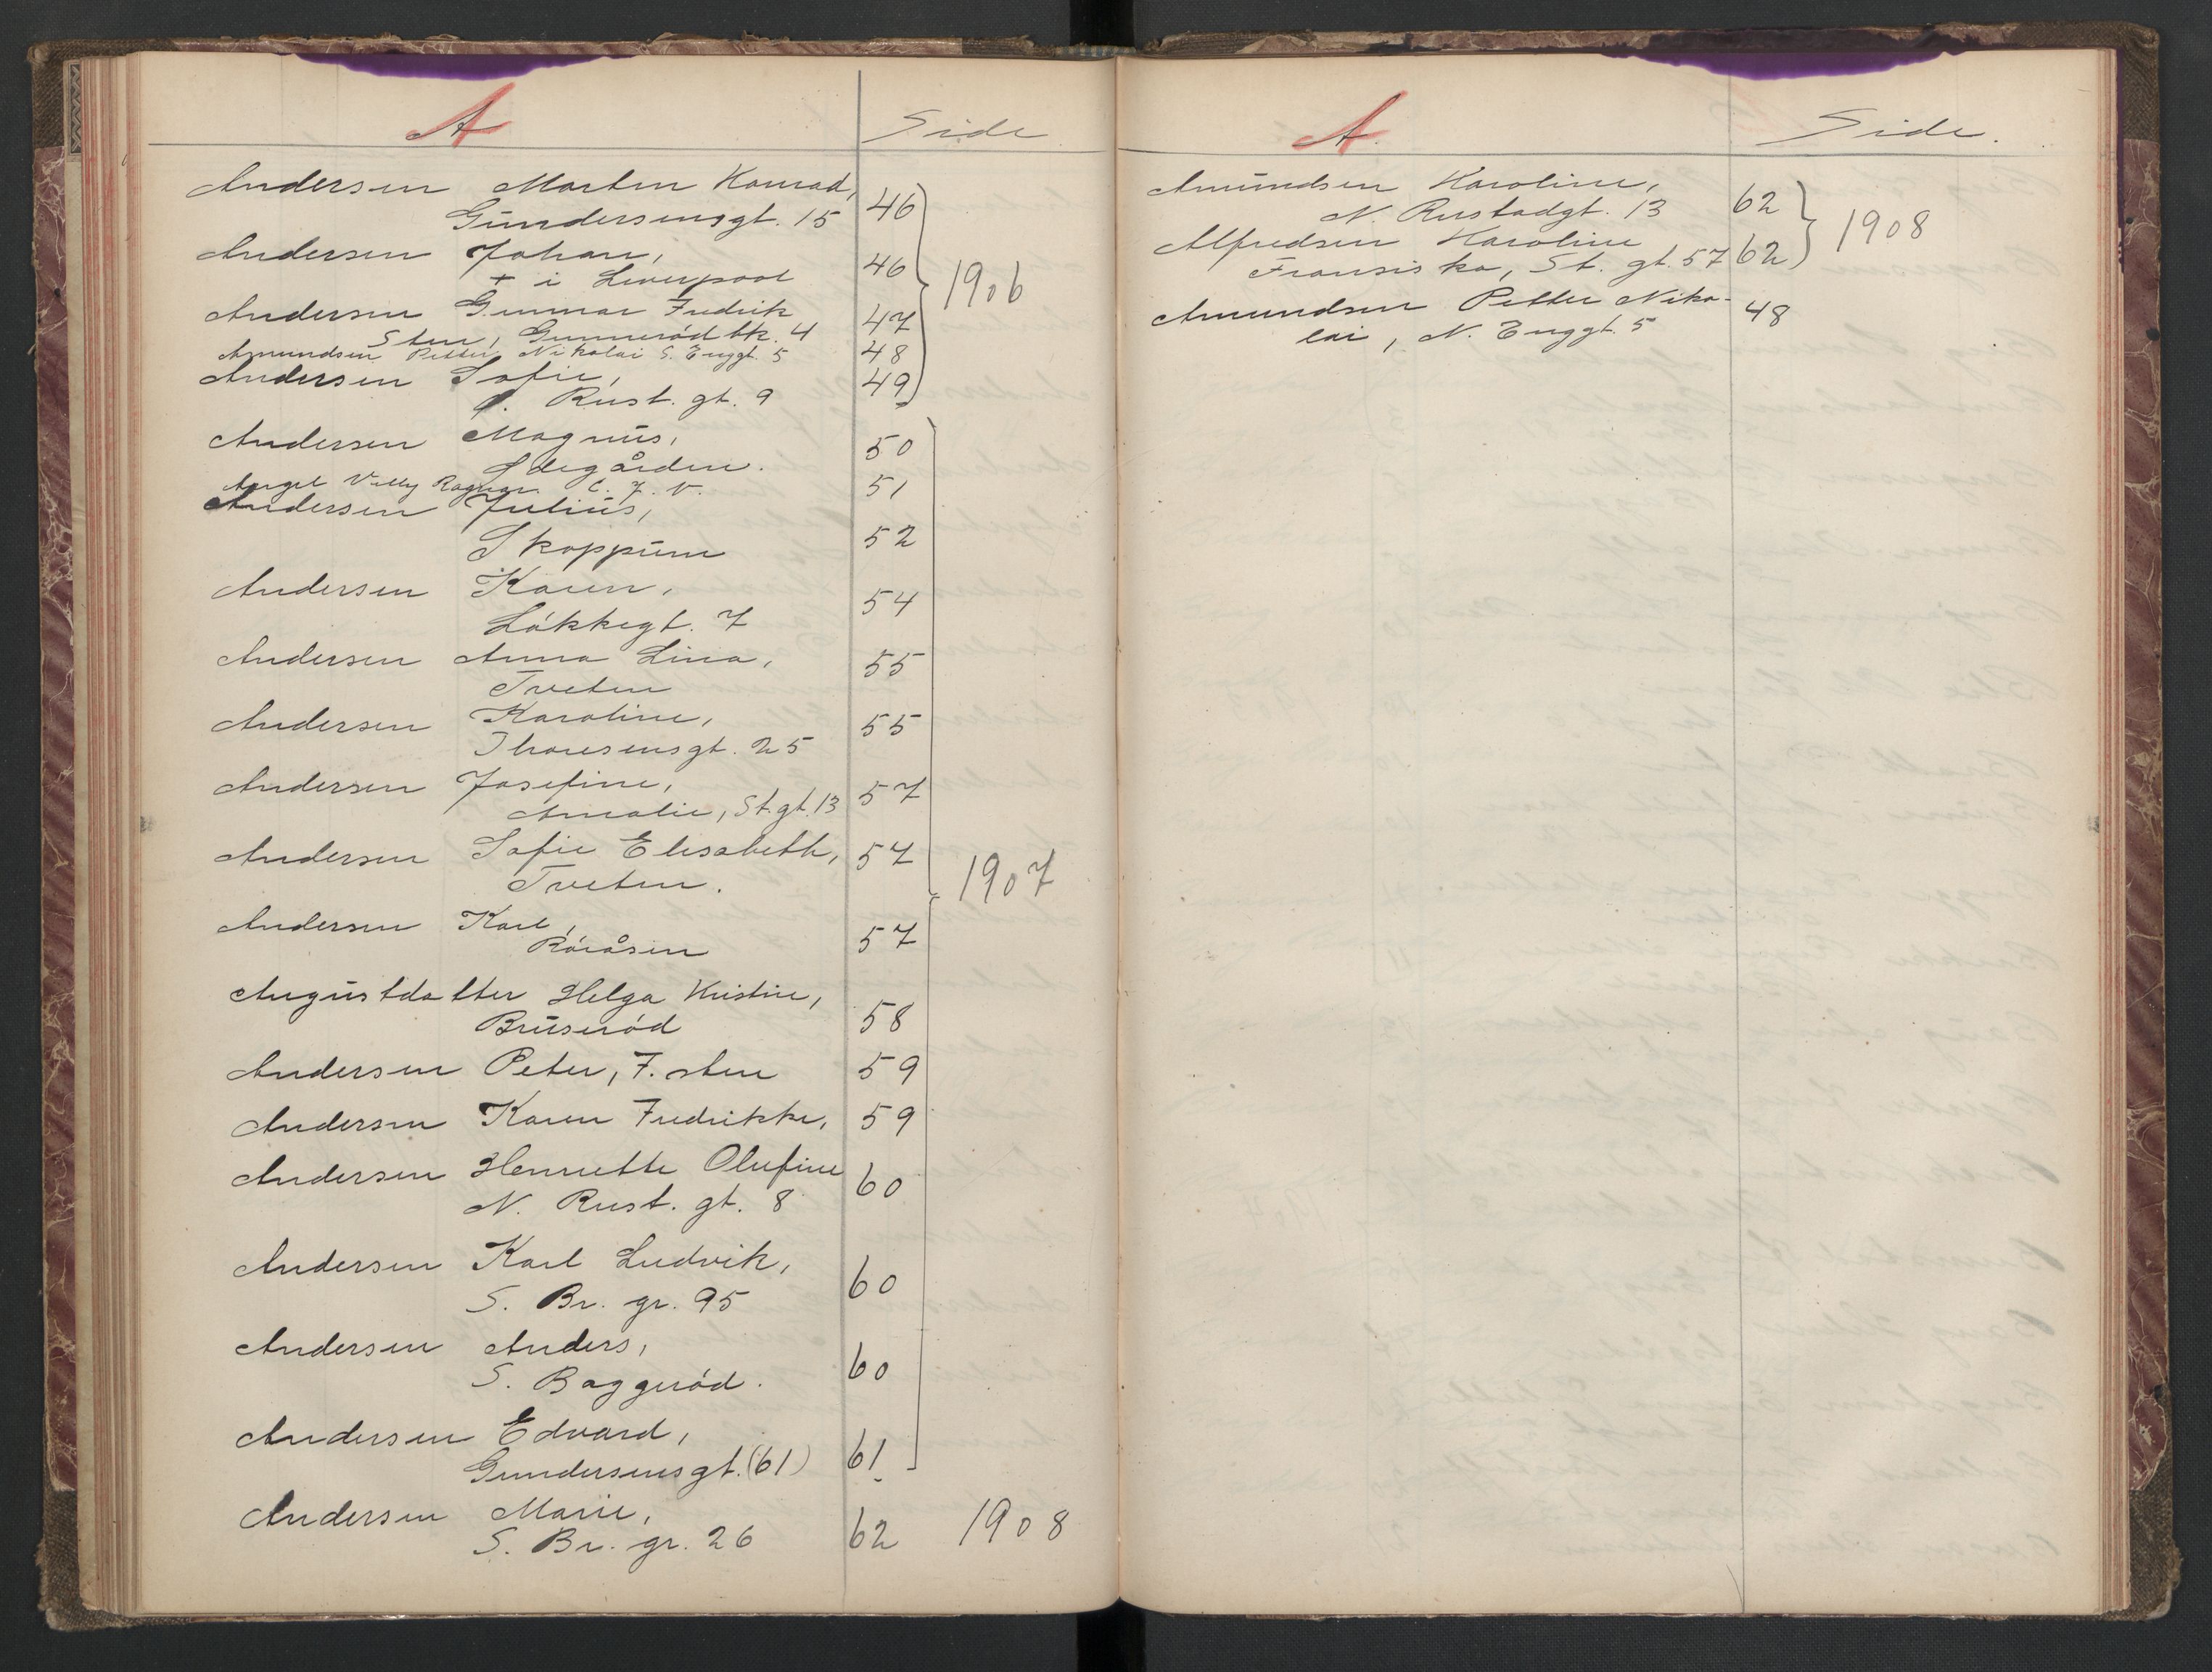 A Side
Andersen Morten Konrad, 46
Gündersensgt. 15
Andersen Johan, 46
† i Liverpool
1906
Andersen Gunnar Fredrik 47
Sten, Gunnerød bk. 4
Amundsen Petter Nikolai S. Enggt. 5 48
Andersen Sofie, 49
Rust. gt. 9
Andersen Magnüs, 50
Ildegården.
Angel Villy Ragnar C. F. V. 51
Andersen Juliüs, 52
Skoppüm
Andersen Karen, 54
Løkkegt. 7
Andersen Anna Lina, 55
Tveten
Andersen Karoline, 55
Thoresensgt. 25
Andersen Josefine, 57
Amalie, St. gt. 13
Andersen Sofie Elisabeth, 57
Tveten.
1907
Andersen Karl, 57
Råråsen
Augüstdatter Helga Kristine,
Brüserød 58
Andersen Peter, F. sten 59
Andersen Karen Fredrikke, 59
Andersen Henriette Olufine 60
N. Rust. gt. 8
Andersen Karl Ludvik, 60
S. Br. gr. 95
Andersen Anders, 60
S. Baggerød.
Andersen Edvard, 61
Gundersensgt. (61)
Andersen Marie,
S. Br. gr. 26 62 1908
A. Side.
Amündsen Karoline,
N. Rustadgt. 13 62
1908
Alfredsen Karoline
Fransiska, St. gt. 57 62
Amundsen Petter Niko- 48
lai, N. Enggt. 5